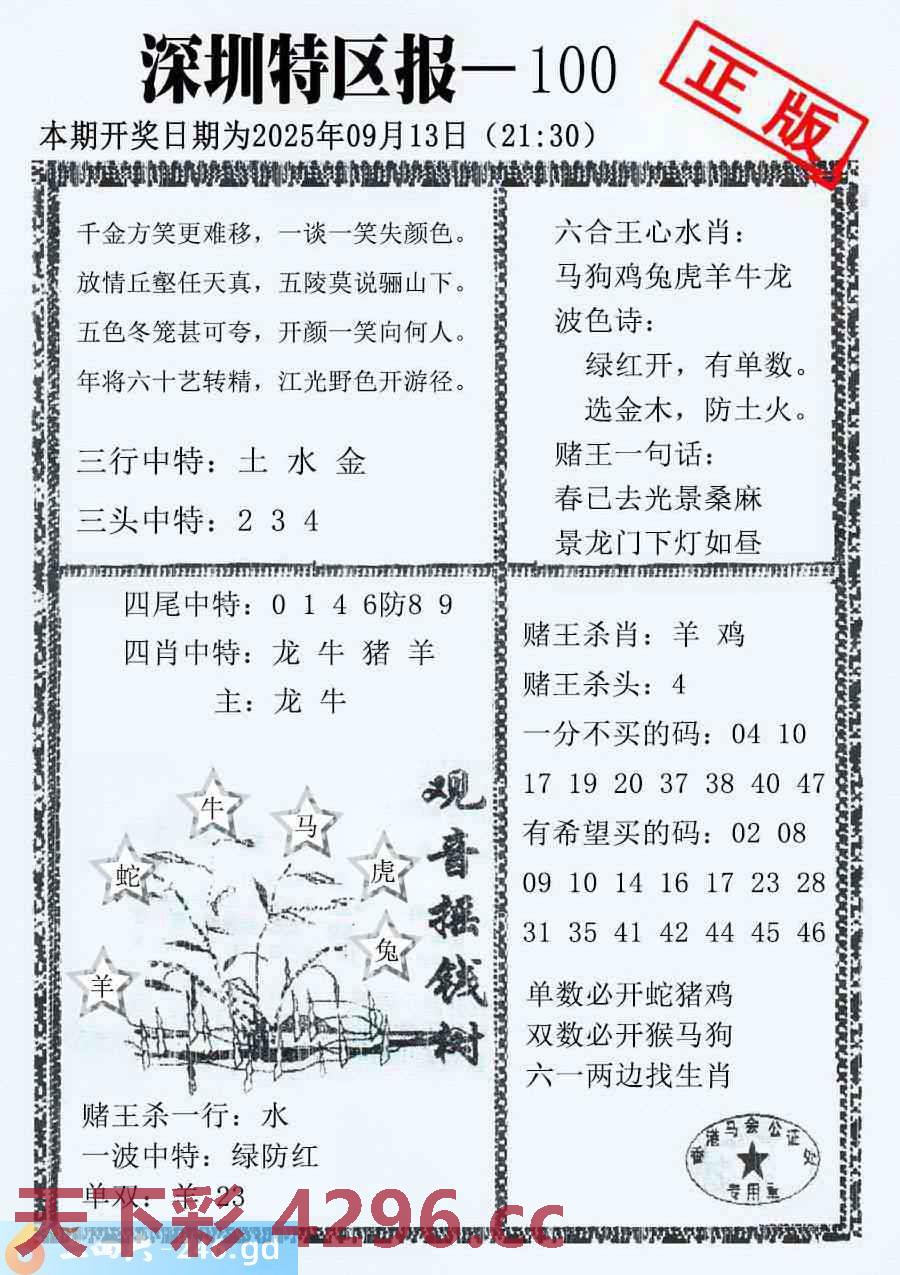 深圳特区报—100
正版
本期开奖日期为2025年09月13日（21:30）
千金方笑更难移，一谈一笑失颜色。
放情丘壑任天真，五陵莫说骊山下。
五色冬笼甚可夸，开颜一笑向何人。
年将六十艺转精，江光野色开游径。
三行中特：土 水 金
三头中特：2 3 4
六合王心水肖：
马狗鸡兔虎羊牛龙
波色诗：
绿红开，有单数。
选金木，防土火。
赌王一句话：
春已去光景桑麻
景龙门下灯如昼
四尾中特：0 1 4 6防8 9
四肖中特：龙 牛 猪 羊
主：龙 牛
观音摇钱树
牛
马
蛇
虎
兔
羊
赌王杀一行：水
一波中特：绿防红
单双：羊 23
赌王杀肖：羊 鸡
赌王杀头：4
一分不买的码：04 10
17 19 20 37 38 40 47
有希望买的码：02 08
09 10 14 16 17 23 28
31 35 41 42 44 45 46
单数必开蛇猪鸡
双数必开猴马狗
六一两边找生肖
香港马会公证处
专用章
天下彩 4296.cc